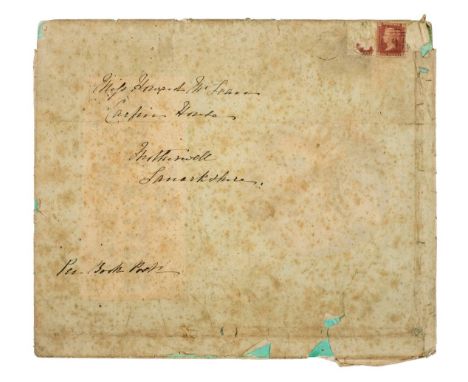 Miss Howard McLean
Carfin House
Motherwell
Lanarkshire.
Per Book Post